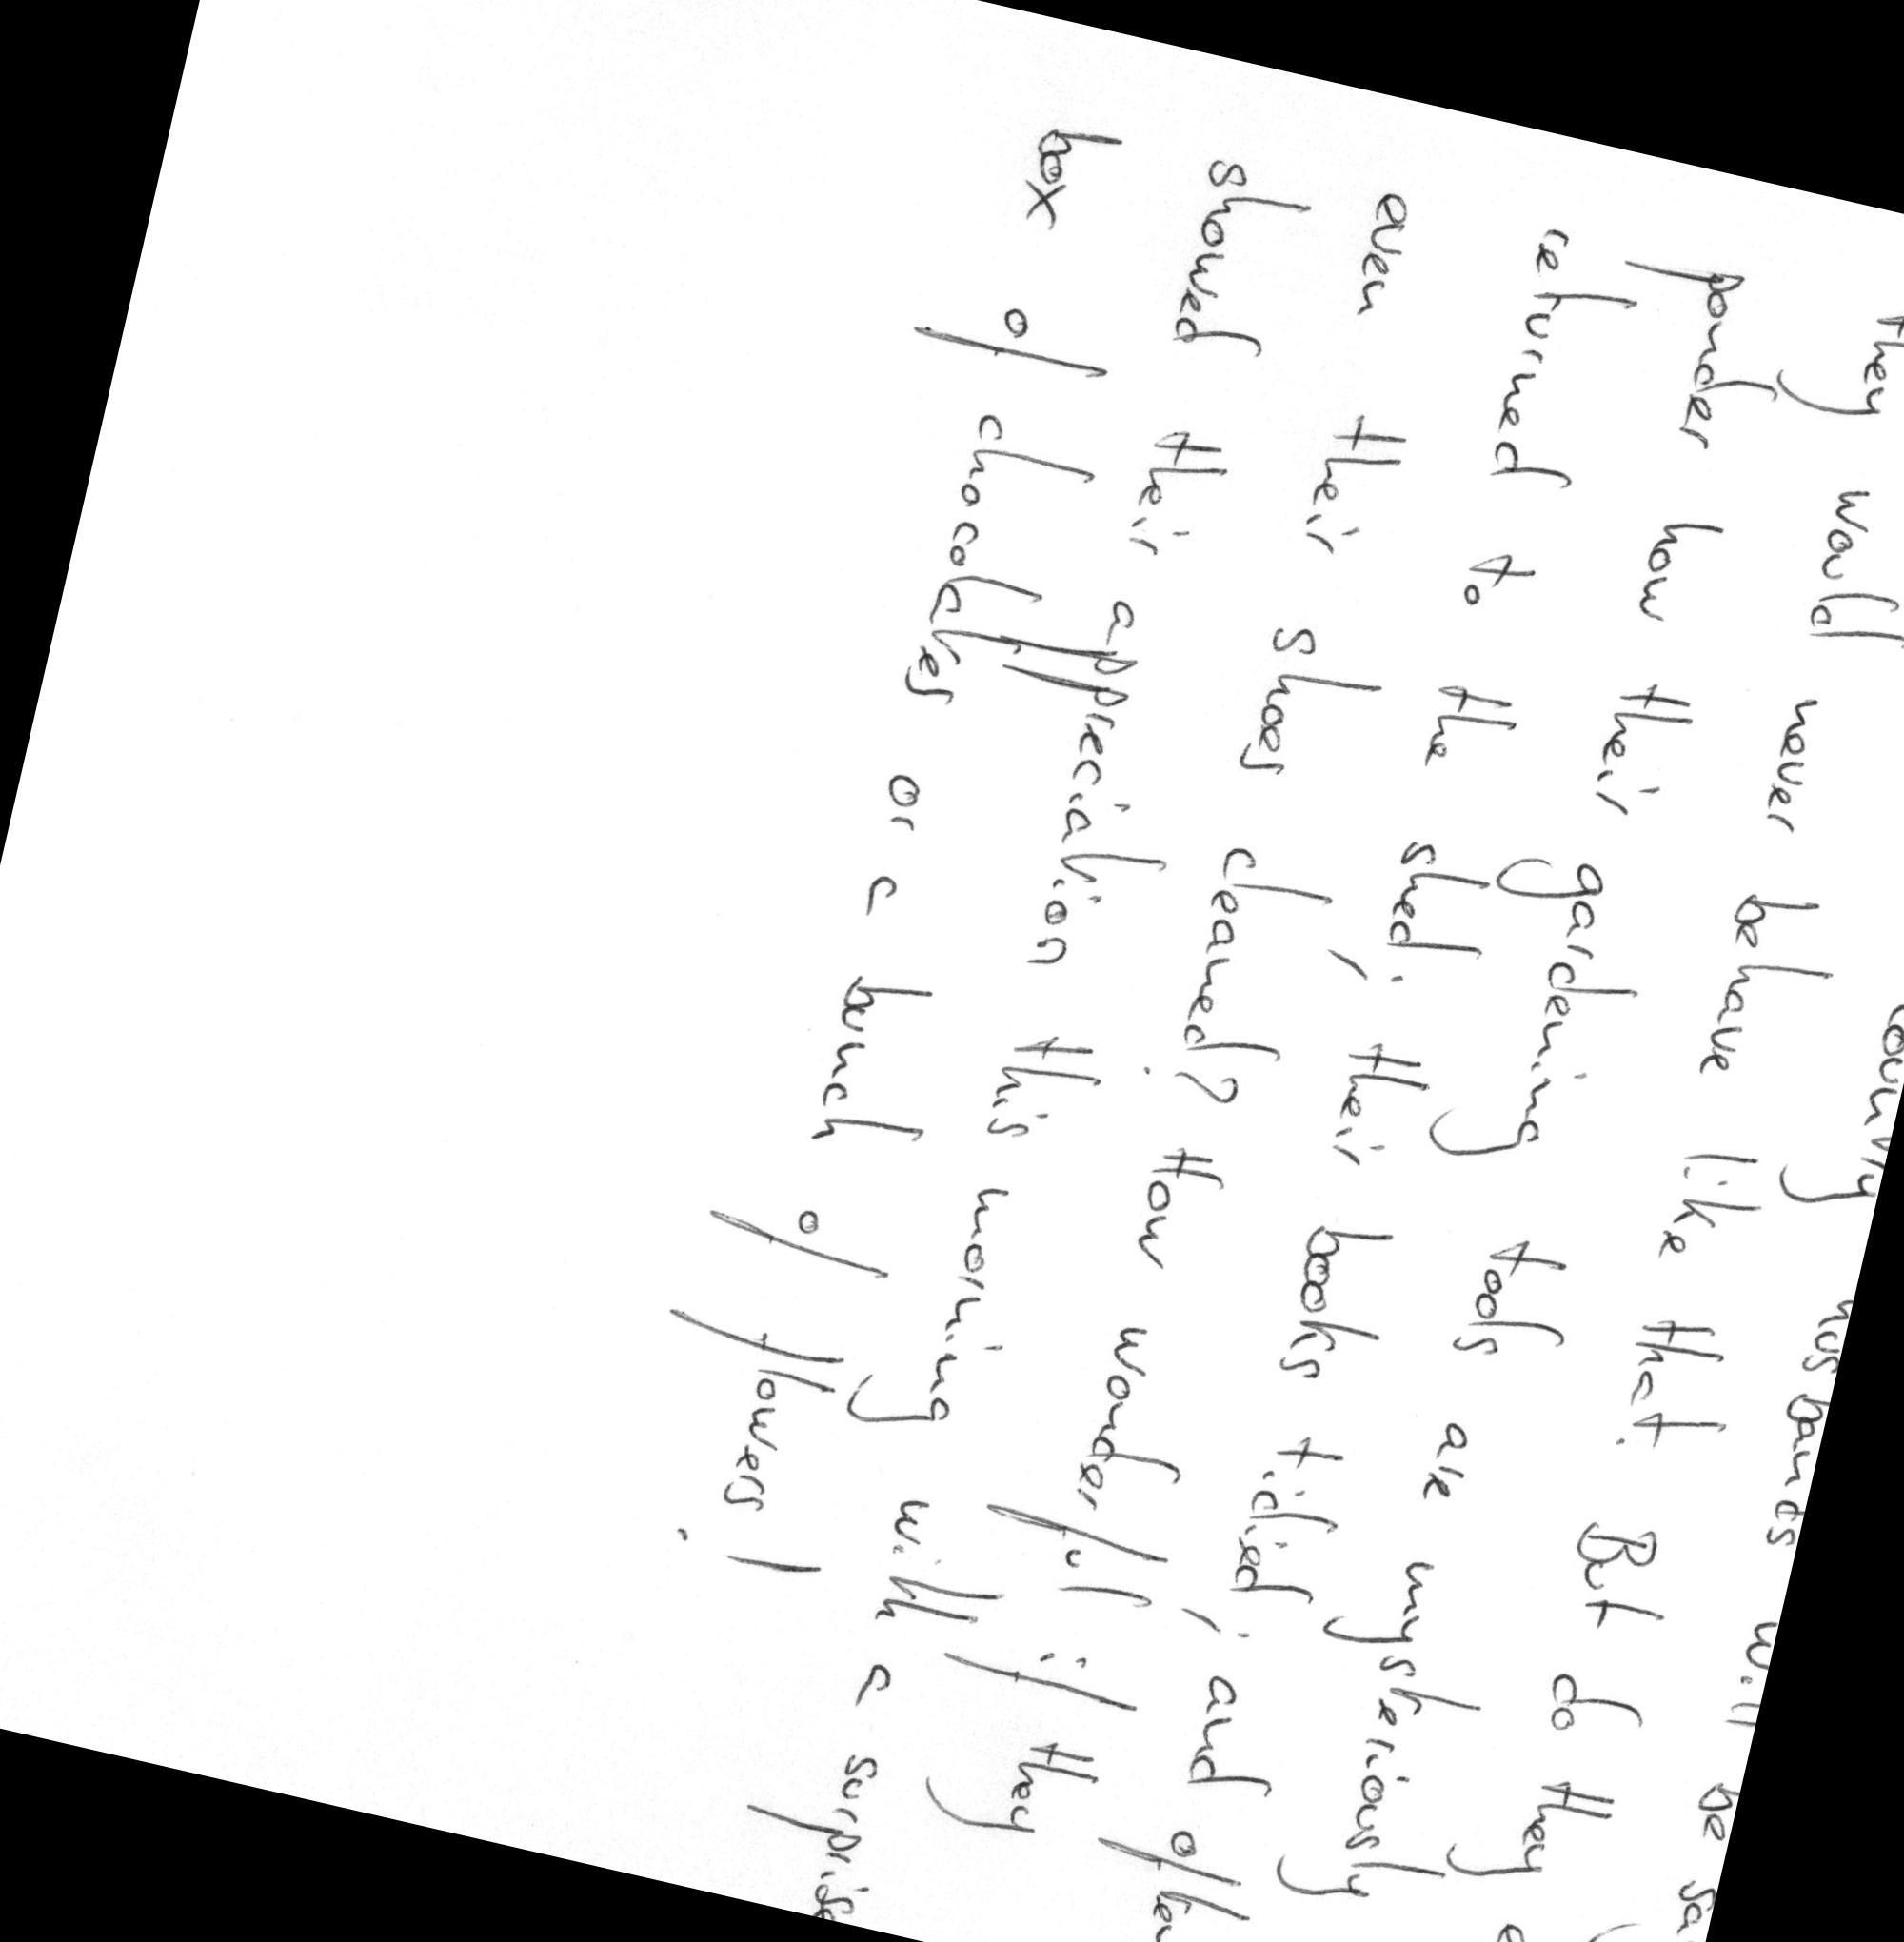 country husbands will be
they would never behave like that. But do they
ponder how their gardening tools are mysteriously
returned to the shed; their books tidied; and often
even their shoes cleaned? How wonderful if they
showed their appreciation this morning with a surprise
box of chocolates or a bunch of flowers!